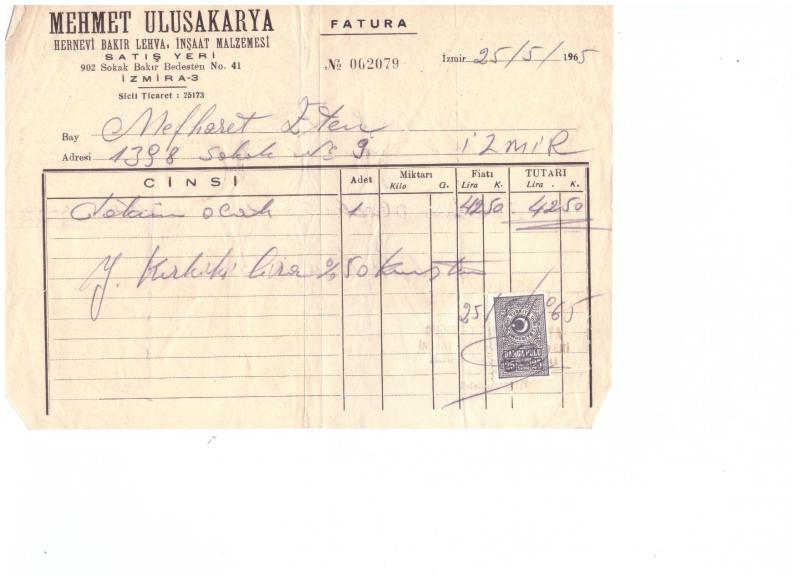 MEHMET ULUSAKARYA
HERNEVİ BAKIR LEHVA, İNŞAAT MALZEMESİ
SATIŞ YERİ
902 Sokak Bakır Bedesten No. 41
İZMİRA-3
Sicil Ticaret : 25173
FATURA
№ 062079
İzmir 25/5/1965
Bay Mefharet
Adresi 1398 sokak No 9 İZMİR
CİNSİ Adet Miktarı Kilo G. Fiatı Lira K. TUTARI Lira . K.
Döküm ocak 1 42 50 42 50
Y. Kırkiki lira % 50 kuruştur
25/5/965
DAMGA PULU
25 25